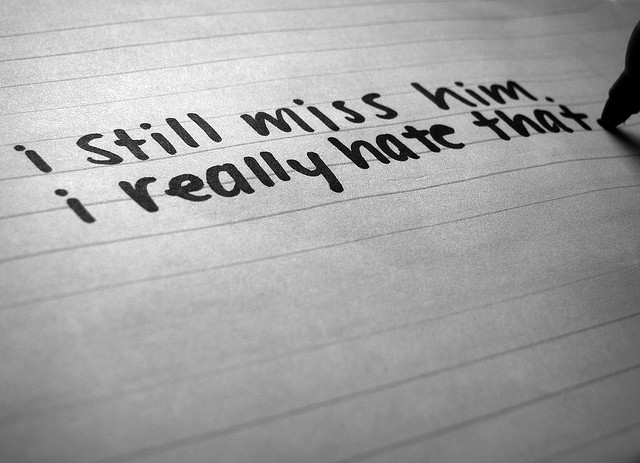 i still miss him.
i really hate that.